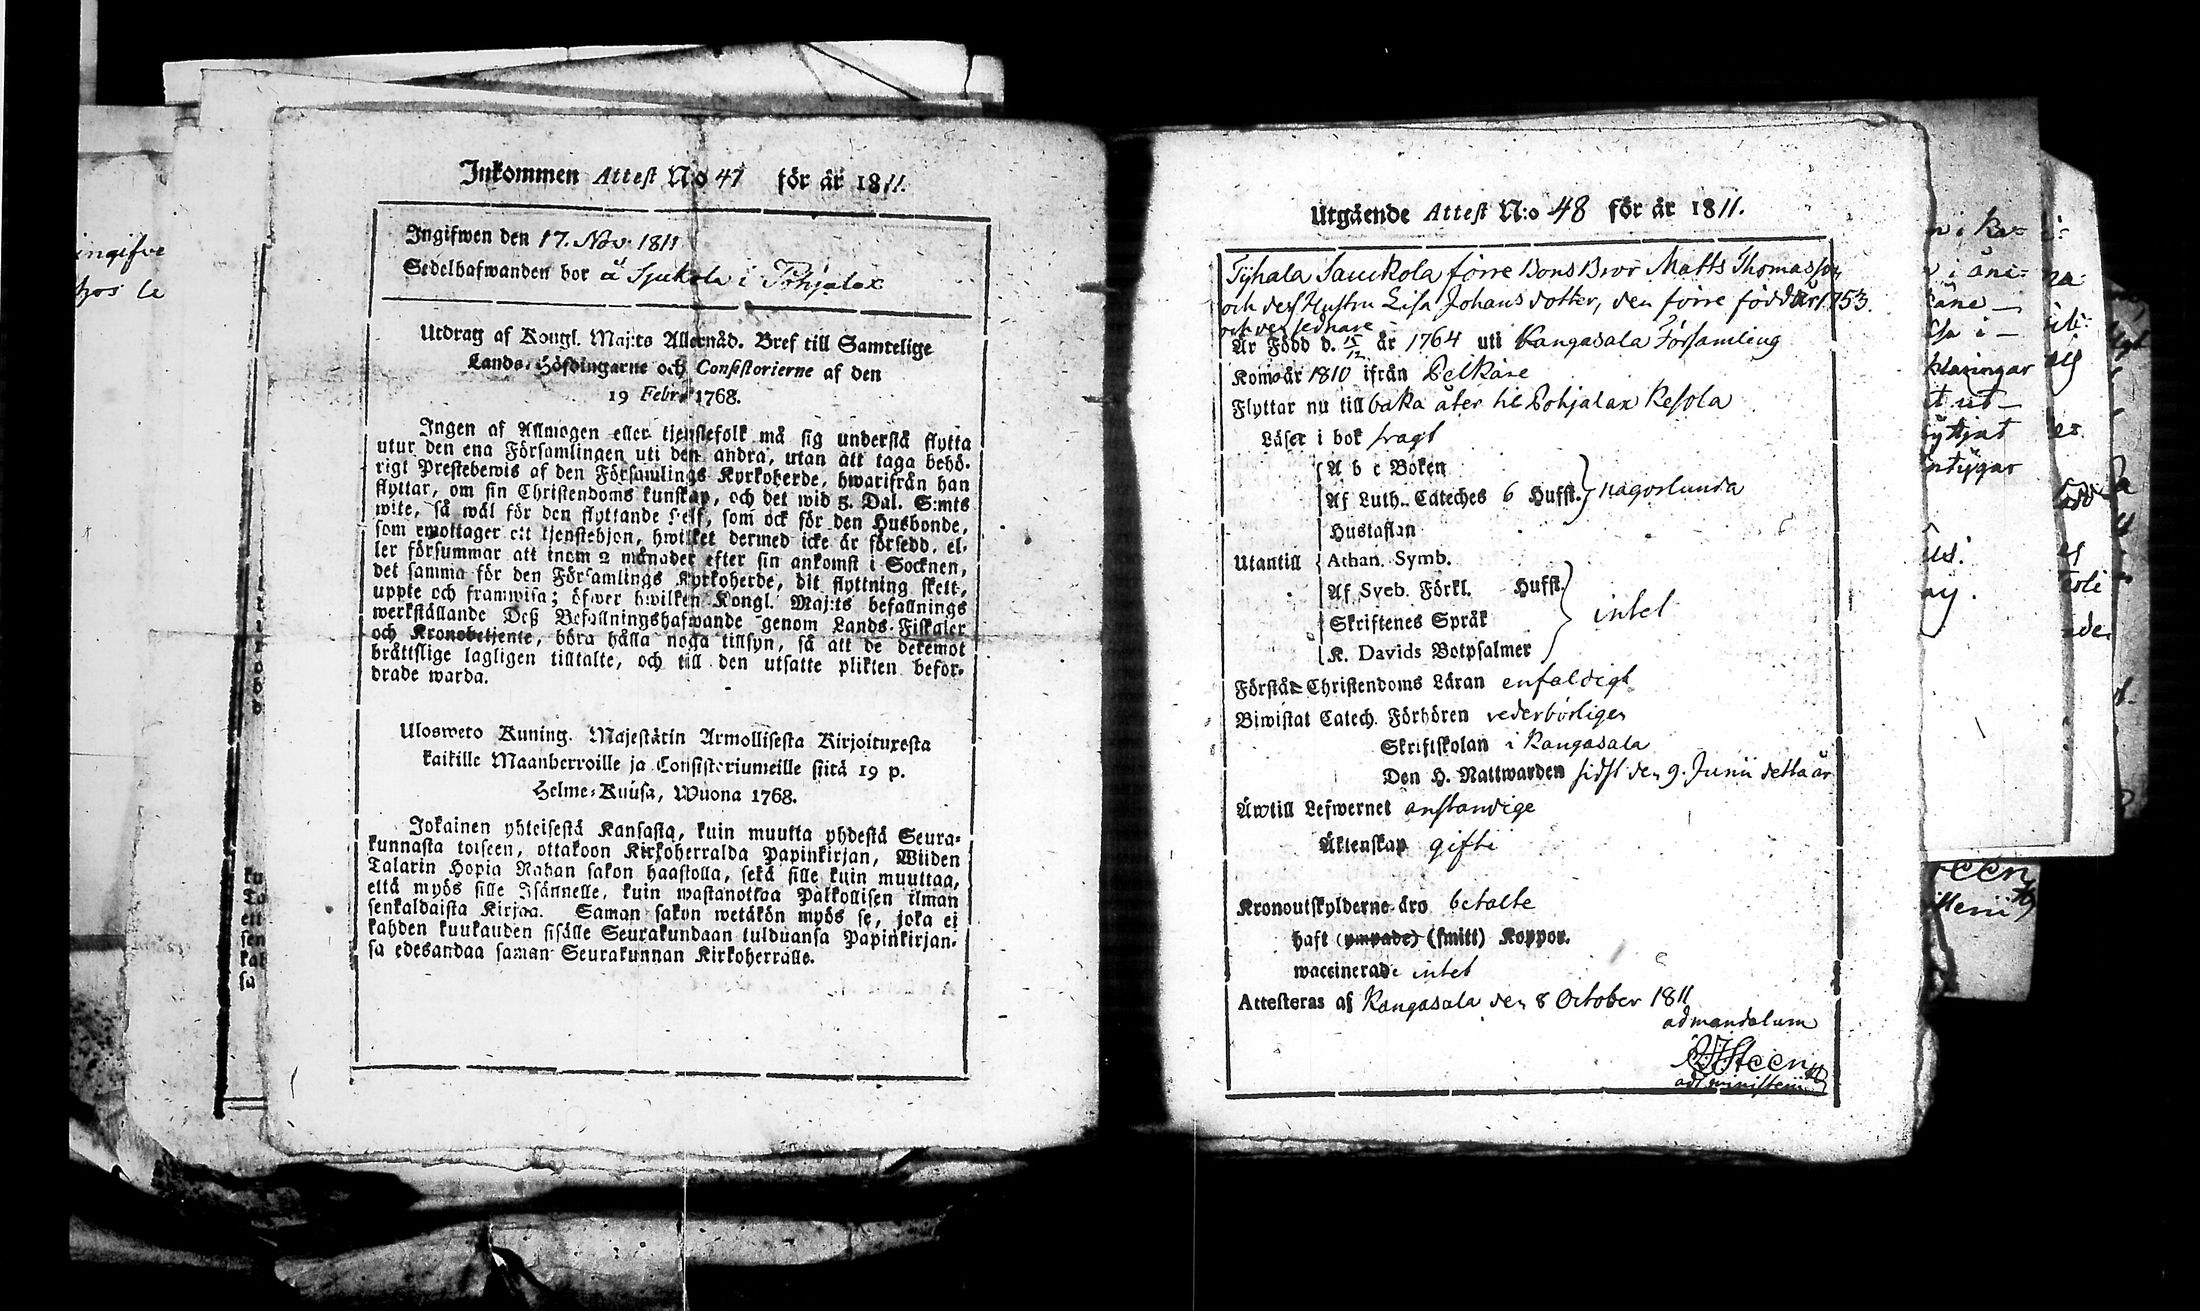 Inkommen Attest No 41 för år 1811.
Ingifwen den 17. Nov. 1811
Sedelhafwanden bor å Sjukola i Pohjalax
Utdrag af Kongl. Maj:ts Allernåd. Bref till Samtelige
Lands-Höfdingarne och Consistorierne af den
19 Febr. 1768.
Ingen af Allmogen eller tjenstefolk må sig understå flytta
utur den ena Församlingen uti den andra, utan att taga behö-
rigt Prestebewis af den Församlings Kyrkoherde, hwarifrån han
flyttar, om sin Christendoms kunskap, och det wid 5. Dal. S:mts
wite, så wäl för den flyttande sielf, som ock för den Husbonde,
som emottager ett tjenstehjon, hwilket dermed icke är försedd, el-
ler försummar att inom 2 månader efter sin ankomst i Socknen,
det samma för den Församlings Kyrkoherde, dit flyttning skett,
uppte och framwisa; öfwer hwilken Kongl. Maj:ts befallnings
werkställande Deß Befallningshafwande genom Lands-Fiskaler
och Kronobetjente, böra hålla noga tillsyn, så att de deremot
bråttslige lagligen tilltalte, och till den utsatte plikten befor-
drade warda.
Ulosweto Kuning. Majestätin Armollisesta Kirjoituxesta
kaikille Maanherroille ja Consistoriumeille siitä 19 p.
Helme-Kuusa, Wuona 1768.
Jokainen yhteisestä Kansasta, kuin muutta yhdestä Seura-
kunnasta toiseen, ottakoon Kirkoherralda Papinkirjan, Wiiden
Talarin Hopia Rahan sakon haastolla, sekä sille kuin muuttaa,
että myös sille Isännelle, kuin wastanottaa Palkollisen ilman
senkaldaista Kirjaa. Saman sakon wetäkön myös se, joka ei
kahden kuukauden sisälle Seurakundaan tulduansa Papinkirjan-
sa edesandaa saman Seurakunnan Kirkoherralle.
Utgående Attest N:o 48 för år 1811.
Tyhala Saukola förre Bons Bror Matts Thomasson
och dess Hustru Lisa Johans dotter, den förre född år 1753.
och den sednare
Är Född d. 15/12 år 1764 uti Kangasala Församling
Kom år 1810 ifrån Pelkäne
Flyttar nu tillbaka åter til Pohjalax Kesola
Läser i bok svagt
A b c Boken
Af Luth. Cateches 6 Hufst. någorlunda
Hustaflan
Utantill Athan. Symb.
Af Sveb. Förkl. Hufst.
Skriftenes Språk intet
K. Davids Botpsalmer
Förstår Christendoms Läran enfaldigt
Biwistat Catech. Förhören vederbörligen
Skriftskolan i Kangasala
Den H. Nattwarden sidst den 9. Junii detta år
Äwtill Lefwernet anständige
Äktenskap gifti
Kronoutskylderne äro betalte
haft (ympade) (smitt) Koppor.
waccinerade intet
Attesteras af Kangasala den 8 October 1811
ad mandatum
Steen
adj ministerii